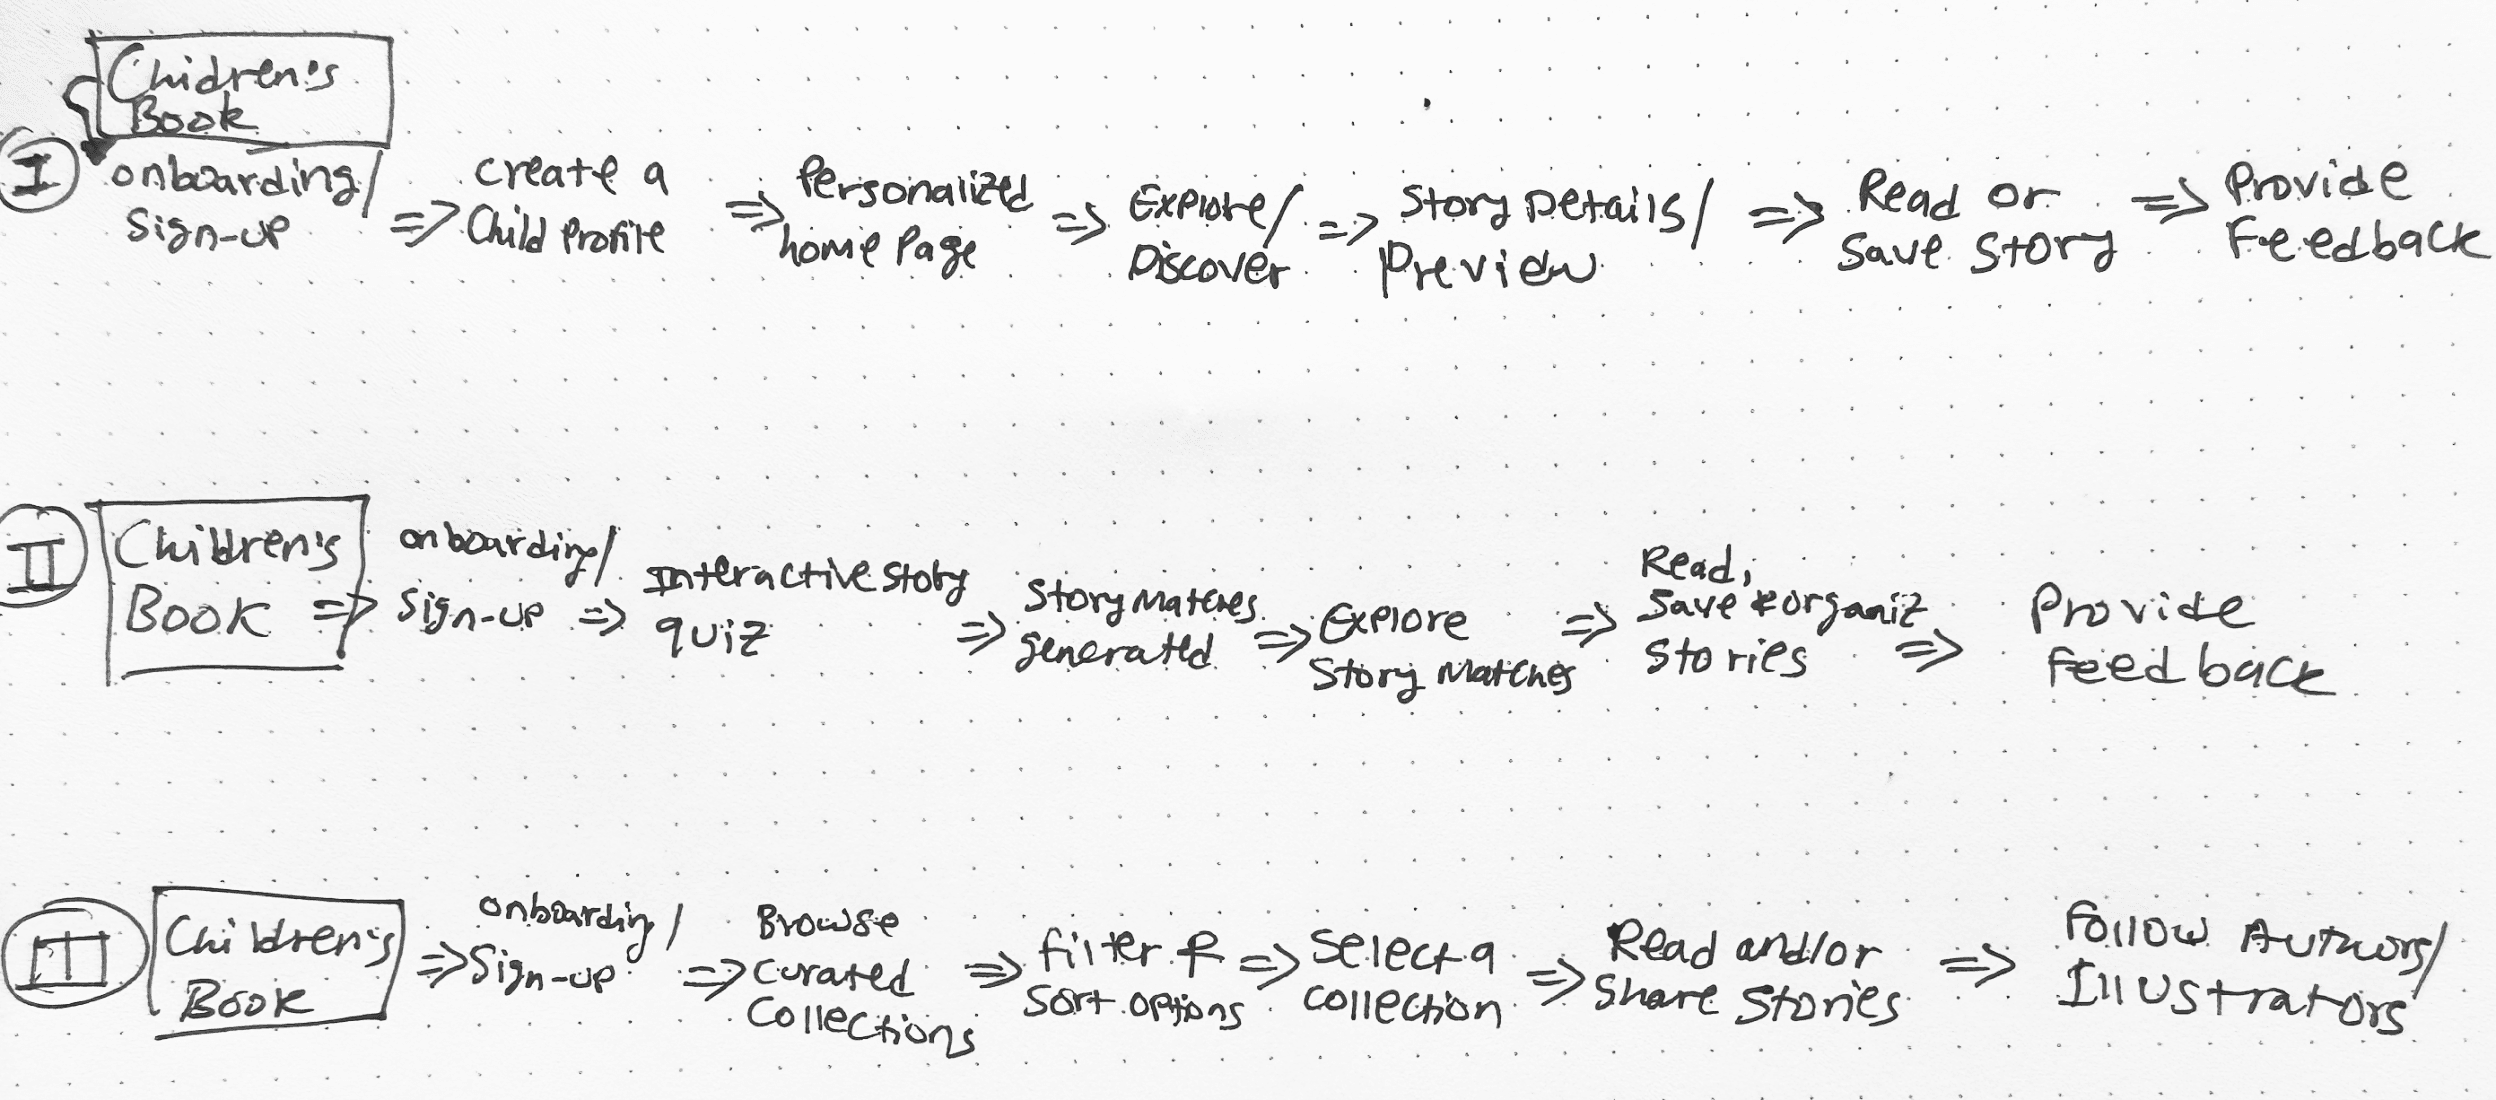 Chidren's
Book
I
onboarding/
Sign-up
=>
Create a
Child Profile
=>
Personalized
home Page
=>
Explore/
Discover
=>
Story Details/
Preview
=>
Read or
Save Story
=>
Provide
Feedback
II
Children's
Book =>
onboarding/
Sign-up =>
Interactive Story
quiz
=>
Story Matches
generated
=>
Explore
Story Matches
=>
Read,
Save & organiz
Stories
=>
Provide
Feedback
III
Children's
Book
=>
onboarding/
Sign-up
=>
Browse
Curated
Collections
=>
filter &
Sort options
=>
Select a
Collection
=>
Read and/or
Share Stories
=>
Follow Authors/
Illustrators